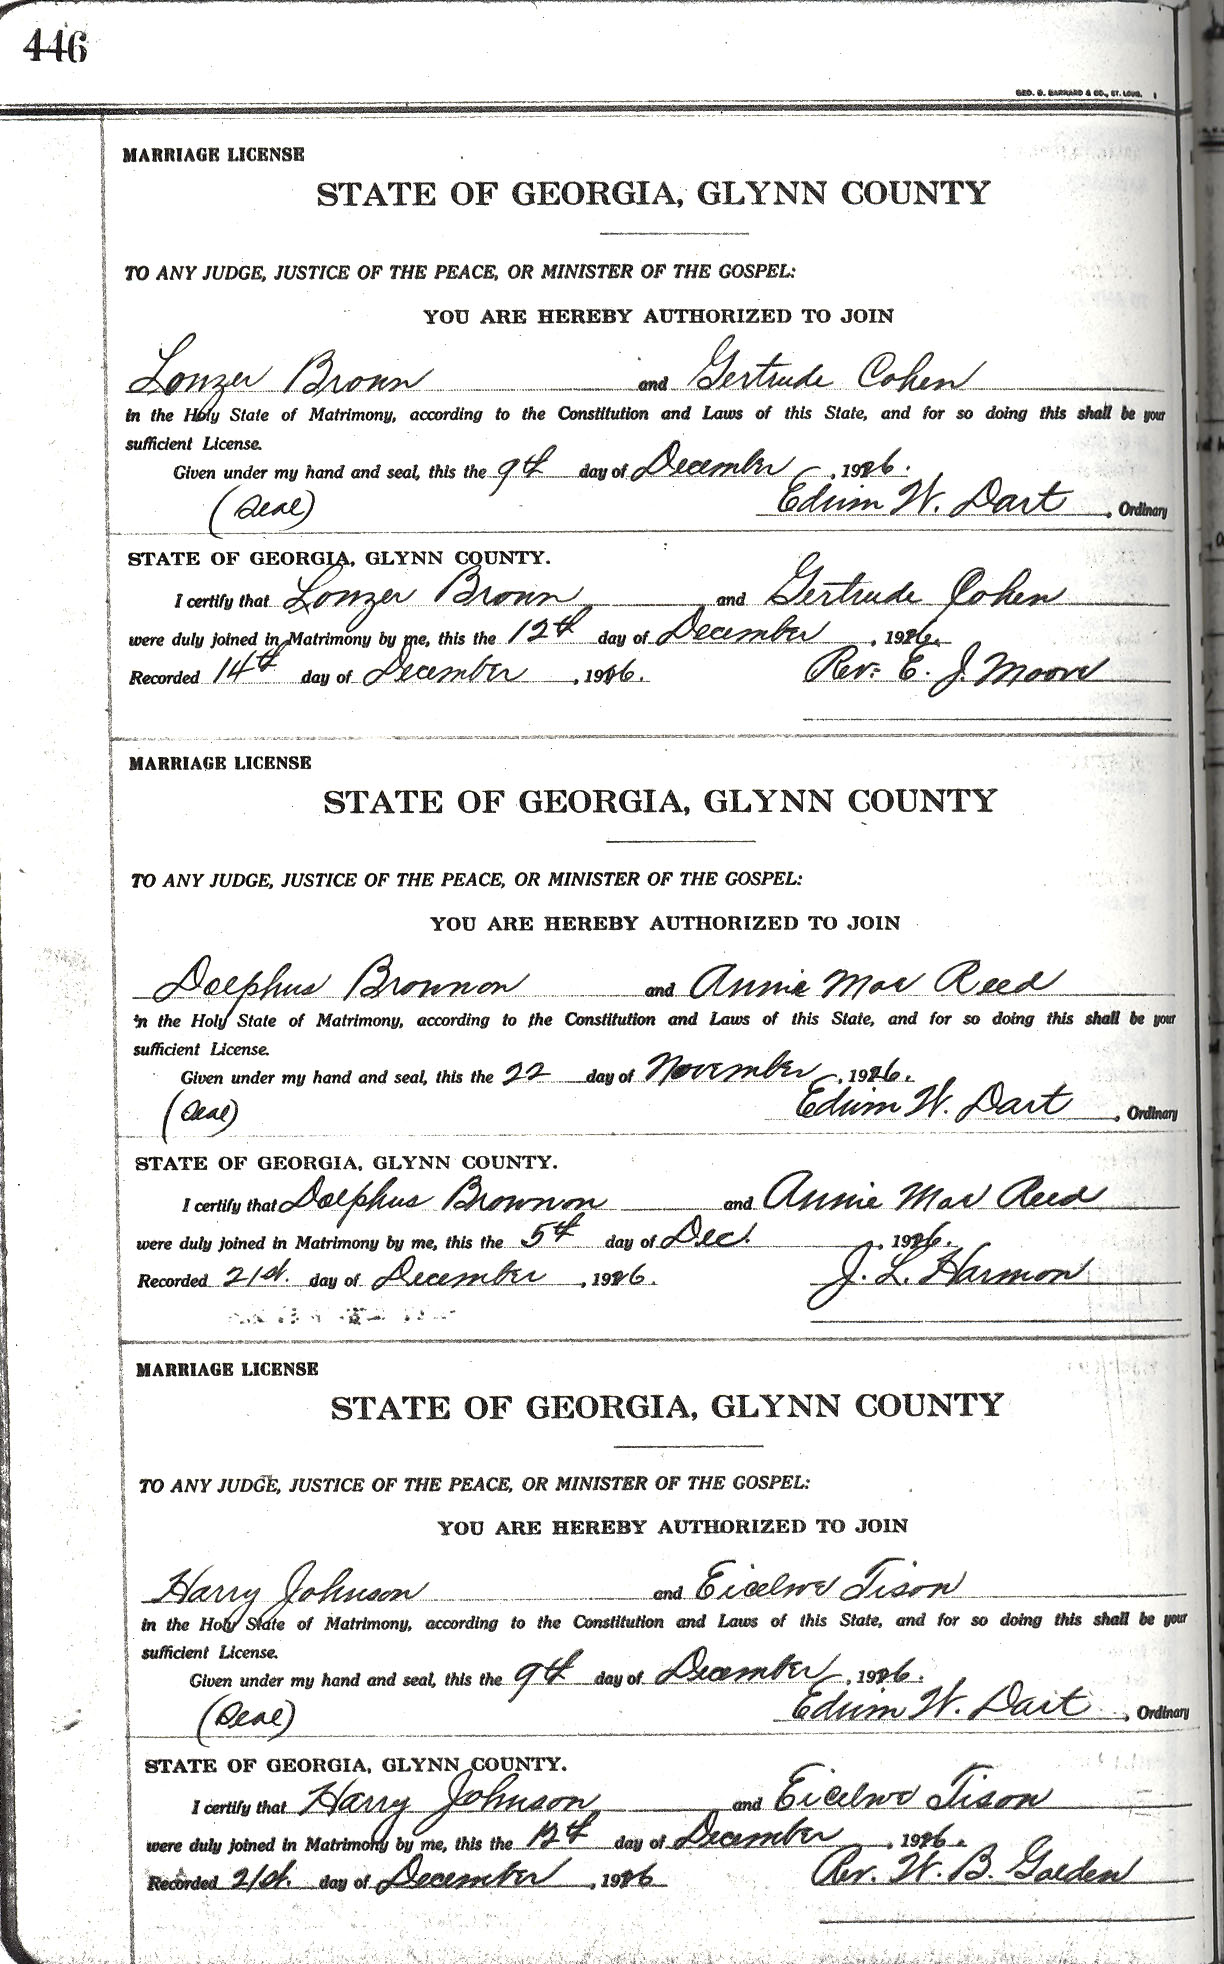 446
GEO. D. BARNARD & CO., ST. LOUIS.
MARRIAGE LICENSE
STATE OF GEORGIA, GLYNN COUNTY
TO ANY JUDGE, JUSTICE OF THE PEACE, OR MINISTER OF THE GOSPEL:
YOU ARE HEREBY AUTHORIZED TO JOIN
Lonzer Brown and Gertrude Cohen
in the Holy State of Matrimony, according to the Constitution and Laws of this State, and for so doing this shall be your
sufficient License.
Given under my hand and seal, this the 9th day of December, 1926.
(Seal) Edwin W. Dart, Ordinary
STATE OF GEORGIA, GLYNN COUNTY.
I certify that Lonzer Brown and Gertrude Cohen
were duly joined in Matrimony by me, this the 12th day of December, 1926.
Recorded 14th day of December, 1926. Rev. E. J. Moore
MARRIAGE LICENSE
STATE OF GEORGIA, GLYNN COUNTY
TO ANY JUDGE, JUSTICE OF THE PEACE, OR MINISTER OF THE GOSPEL:
YOU ARE HEREBY AUTHORIZED TO JOIN
Dolphus Brownon and Annie Mae Reed
in the Holy State of Matrimony, according to the Constitution and Laws of this State, and for so doing this shall be your
sufficient License.
Given under my hand and seal, this the 22 day of November, 1926.
(Seal) Edwin W. Dart, Ordinary
STATE OF GEORGIA, GLYNN COUNTY.
I certify that Dolphus Brownon and Annie Mae Reed
were duly joined in Matrimony by me, this the 5th day of Dec., 1926.
Recorded 21st. day of December, 1926. J. L. Harmon
MARRIAGE LICENSE
STATE OF GEORGIA, GLYNN COUNTY
TO ANY JUDGE, JUSTICE OF THE PEACE, OR MINISTER OF THE GOSPEL:
YOU ARE HEREBY AUTHORIZED TO JOIN
Harry Johnson and Tison
in the Holy State of Matrimony, according to the Constitution and Laws of this State, and for so doing this shall be your
sufficient License.
Given under my hand and seal, this the 9th day of December, 1926.
(Seal) Edwin W. Dart, Ordinary
STATE OF GEORGIA, GLYNN COUNTY.
I certify that Harry Johnson and Tison
were duly joined in Matrimony by me, this the 12th day of December, 1926.
Recorded 21st. day of December, 1926 Rev. W. B. Golden